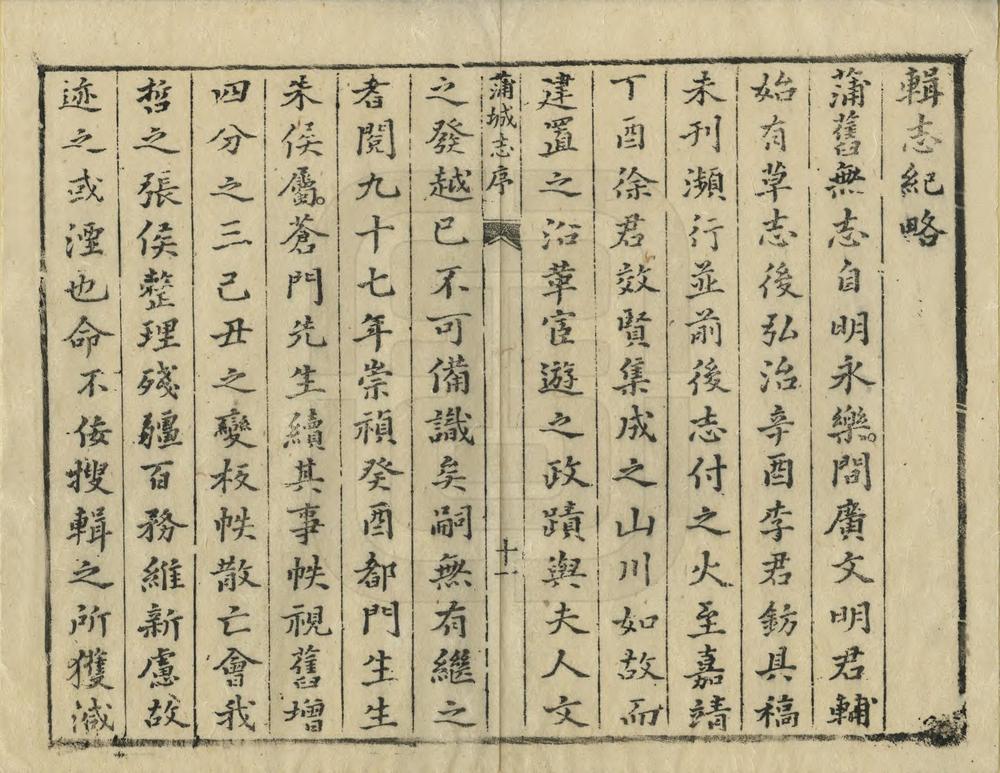 輯志紀略
蒲舊無志自明永樂間廣文明君輔
始有草志後弘治辛酉李君鈁具稿
未刊瀕行並前後志付之火至嘉靖
丁酉徐君效賢集成之山川如故而
建置之沿革宦遊之政蹟與夫人文
蒲城志序
十一
之發越已不可備識矣嗣無有繼之
者閱九十七年崇禎癸酉都門生生
朱侯屬蒼門先生續其事帙視舊增
四分之三己丑之變板帙散亡會我
悊之張侯整理殘疆百務維新慮故
迹之或湮也命不佞搜輯之所獲減